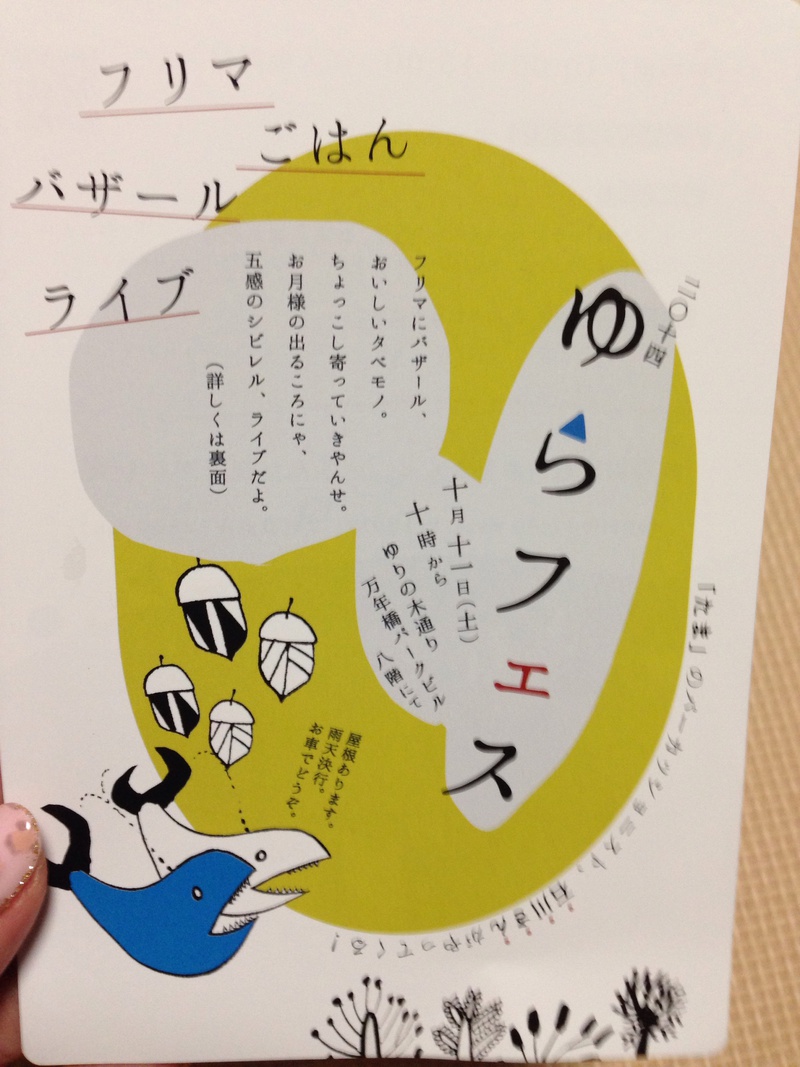 フリマ
ごはん
バザール
ライブ
二〇十四
ゆらフェス
フリマにバザール、
おいしいタベモノ。
ちょっこし寄っていきやんせ。
お月様の出るころにゃ、
五感のシビレル、ライブだよ。
（詳しくは裏面）
十月十一日（土）
十時から
ゆりの木通り
万年橋パークビル
八階にて
屋根あります。
雨天決行。
お車でどうぞ。
「たま」のパーカッショニスト、石川さんがやってくる！